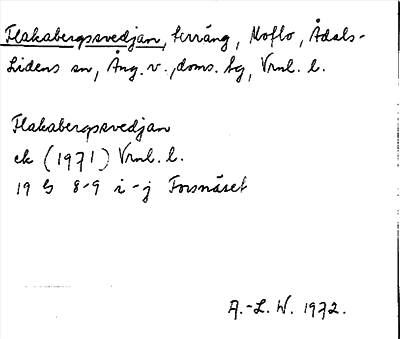 Flakabergssvedjan, terräng, Moflo, Ådals-
Lidens sn, Ång. v., doms. tg, Vrnl. l.
Flakabergssvedjan
ek (1971) Vrnl. l.
19 G 8-9 i-j Forsnäset
A.-L. W. 1972.